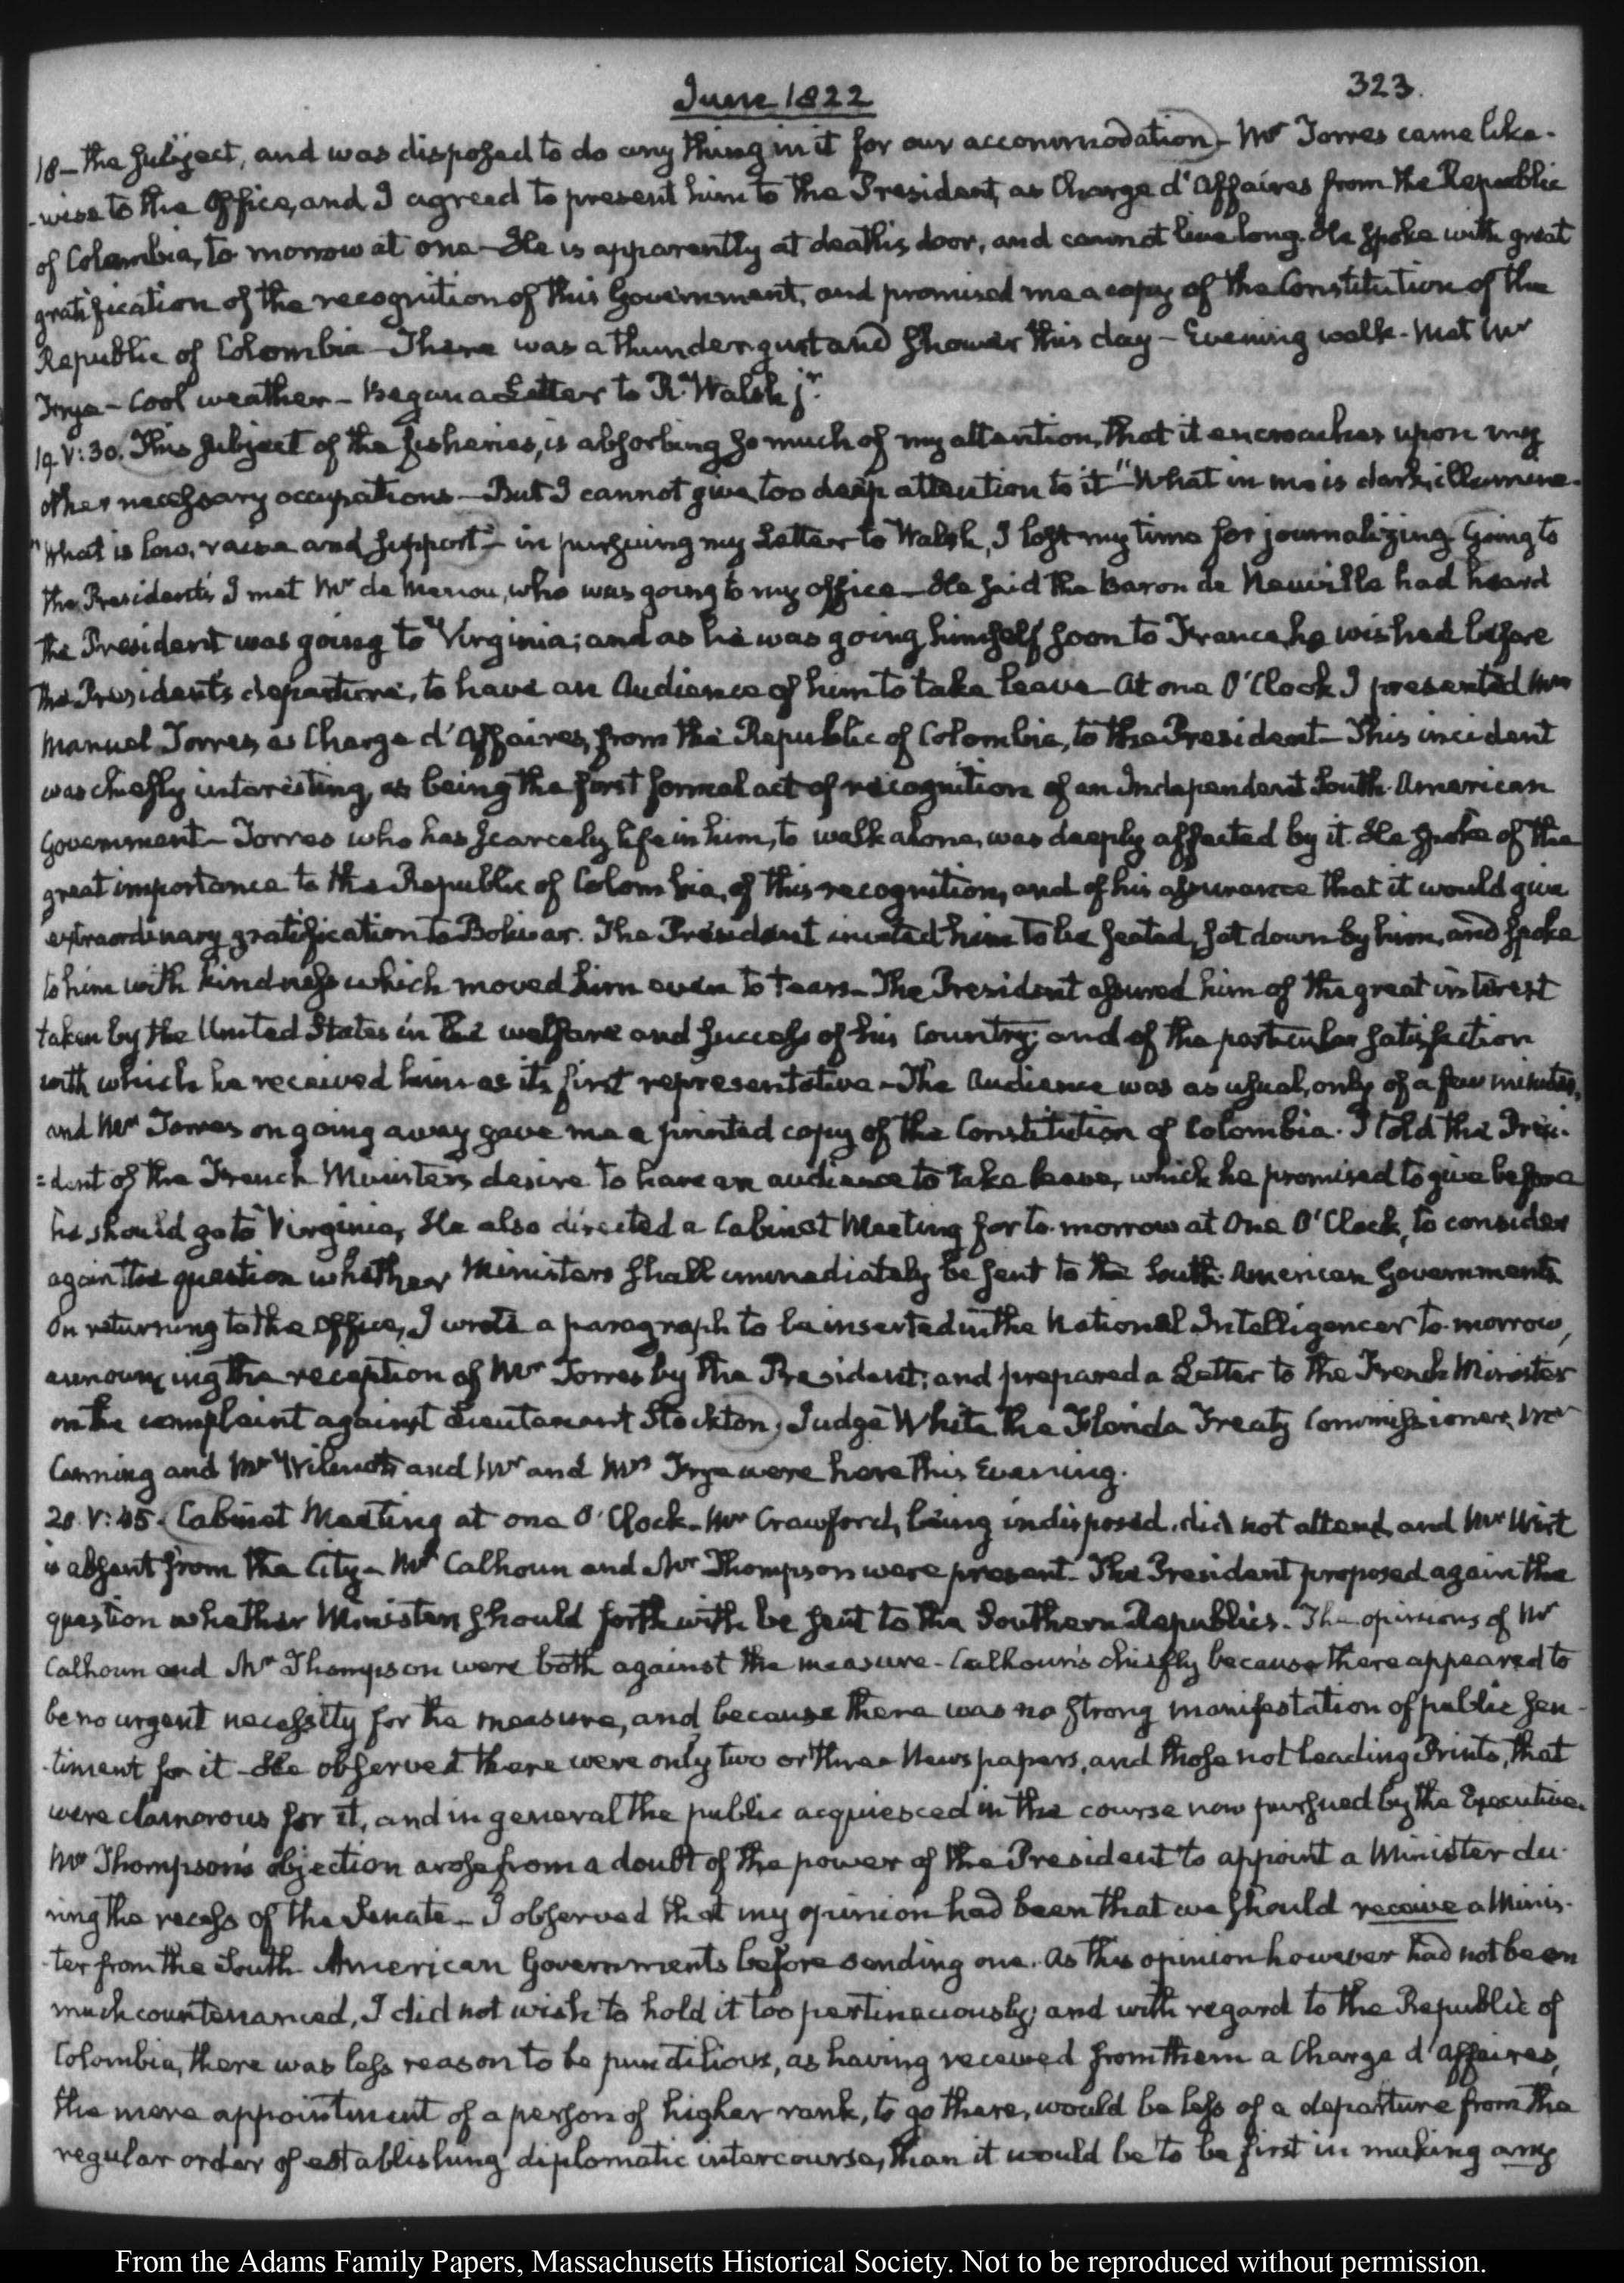 June 1822
323.
18 – the subject, and was disposed to do any thing in it for our accommodation – Mr Torres came like-
-wise to the Office, and I agreed to present him to the President, as Charge d'Affaires from the Republic
of Colombia, to morrow at one – He is apparently at death's door, and cannot live long. He spoke with great
gratification of the recognition of this Government, and promised me a copy of the Constitution of the
Republic of Colombia – There was a thunder gust and shower this day – Evening walk – Met Mr
Frye – Cool weather – Began a Letter to R. Walsh jr.
19. V:30. This subject of the fisheries, is absorbing so much of my attention, that it encroaches upon my
other necessary occupations – But I cannot give too deep attention to it – "What in me is dark, illumine –
"What is low, raise and support" – in pursuing my Letter to Walsh, I lost my time for journalizing. Going to
the President's I met Mr de Menou, who was going to my office – He said the Baron de Neuville had heard
the President was going to Virginia; and as he was going himself soon to France, he wished before
the President's departure, to have an Audience of him to take leave – At one O'Clock I presented Mr
Manuel Torres, as Charge d'Affaires, from the Republic of Colombia, to the President – This incident
was chiefly interesting, as being the first formal act of recognition of an Independent South-American
Government – Torres who has scarcely life in him, to walk alone, was deeply affected by it. He spoke of the
great importance to the Republic of Colombia, of this recognition, and of his assurance that it would give
extraordinary gratification to Bolivar. The President invited him to be seated, sat down by him, and spoke
to him with kindness which moved him even to tears – The President assured him of the great interest
taken by the United States in the welfare and success of his Country; and of the particular satisfaction
with which he received him as its first representative – The Audience was as usual, only of a few minutes,
and Mr Torres on going away gave me a printed copy of the Constitution of Colombia. I told the Presi-
=dent of the French Minister's desire to have an audience to take leave, which he promised to give before
he should go to Virginia, He also directed a Cabinet Meeting for to-morrow at One O'Clock, to consider
again the question whether Ministers shall immediately be sent to the South-American Governments
On returning to the Office, I wrote a paragraph to be inserted in the National Intelligencer to-morrow,
announcing the reception of Mr Torres by the President; and prepared a Letter to the French Minister
on the complaint against Lieutenant Stockton, Judge White the Florida Treaty Commissioner, Mr
Canning and Mr and Mr and Mrs Frye were here this Evening.
20. V:45. Cabinet Meeting at one O'Clock – Mr Crawford, being indisposed, did not attend, and Mr Wirt
is absent from the City – Mr Calhoun and Mr Thompson were present – The President proposed again the
question whether Ministers should forthwith be sent to the Southern Republics. The opinions of Mr
Calhoun and Mr Thompson were both against the measure – Calhoun's chiefly because there appeared to
be no urgent necessity for the measure, and because there was no strong manifestation of public sen-
-timent for it – He observed there were only two or three Newspapers, and those not leading Prints, that
were clamorous for it, and in general the public acquiesced in the course now pursued by the Executive.
Mr Thompson's objection arose from a doubt of the power of the President to appoint a Minister du-
ring the recess of the Senate – I observed that my opinion had been that we should receive a Minis-
-ter from the South-American Governments before sending one. As this opinion however had not been
much countenanced, I did not wish to hold it too pertinaciously; and with regard to the Republic of
Colombia, there was less reason to be punctilious, as having received from them a Charge d'Affaires,
the mere appointment of a person of higher rank, to go there, would be less of a departure from the
regular order of establishing diplomatic intercourse, than it would be to be first in making any
From the Adams Family Papers, Massachusetts Historical Society. Not to be reproduced without permission.